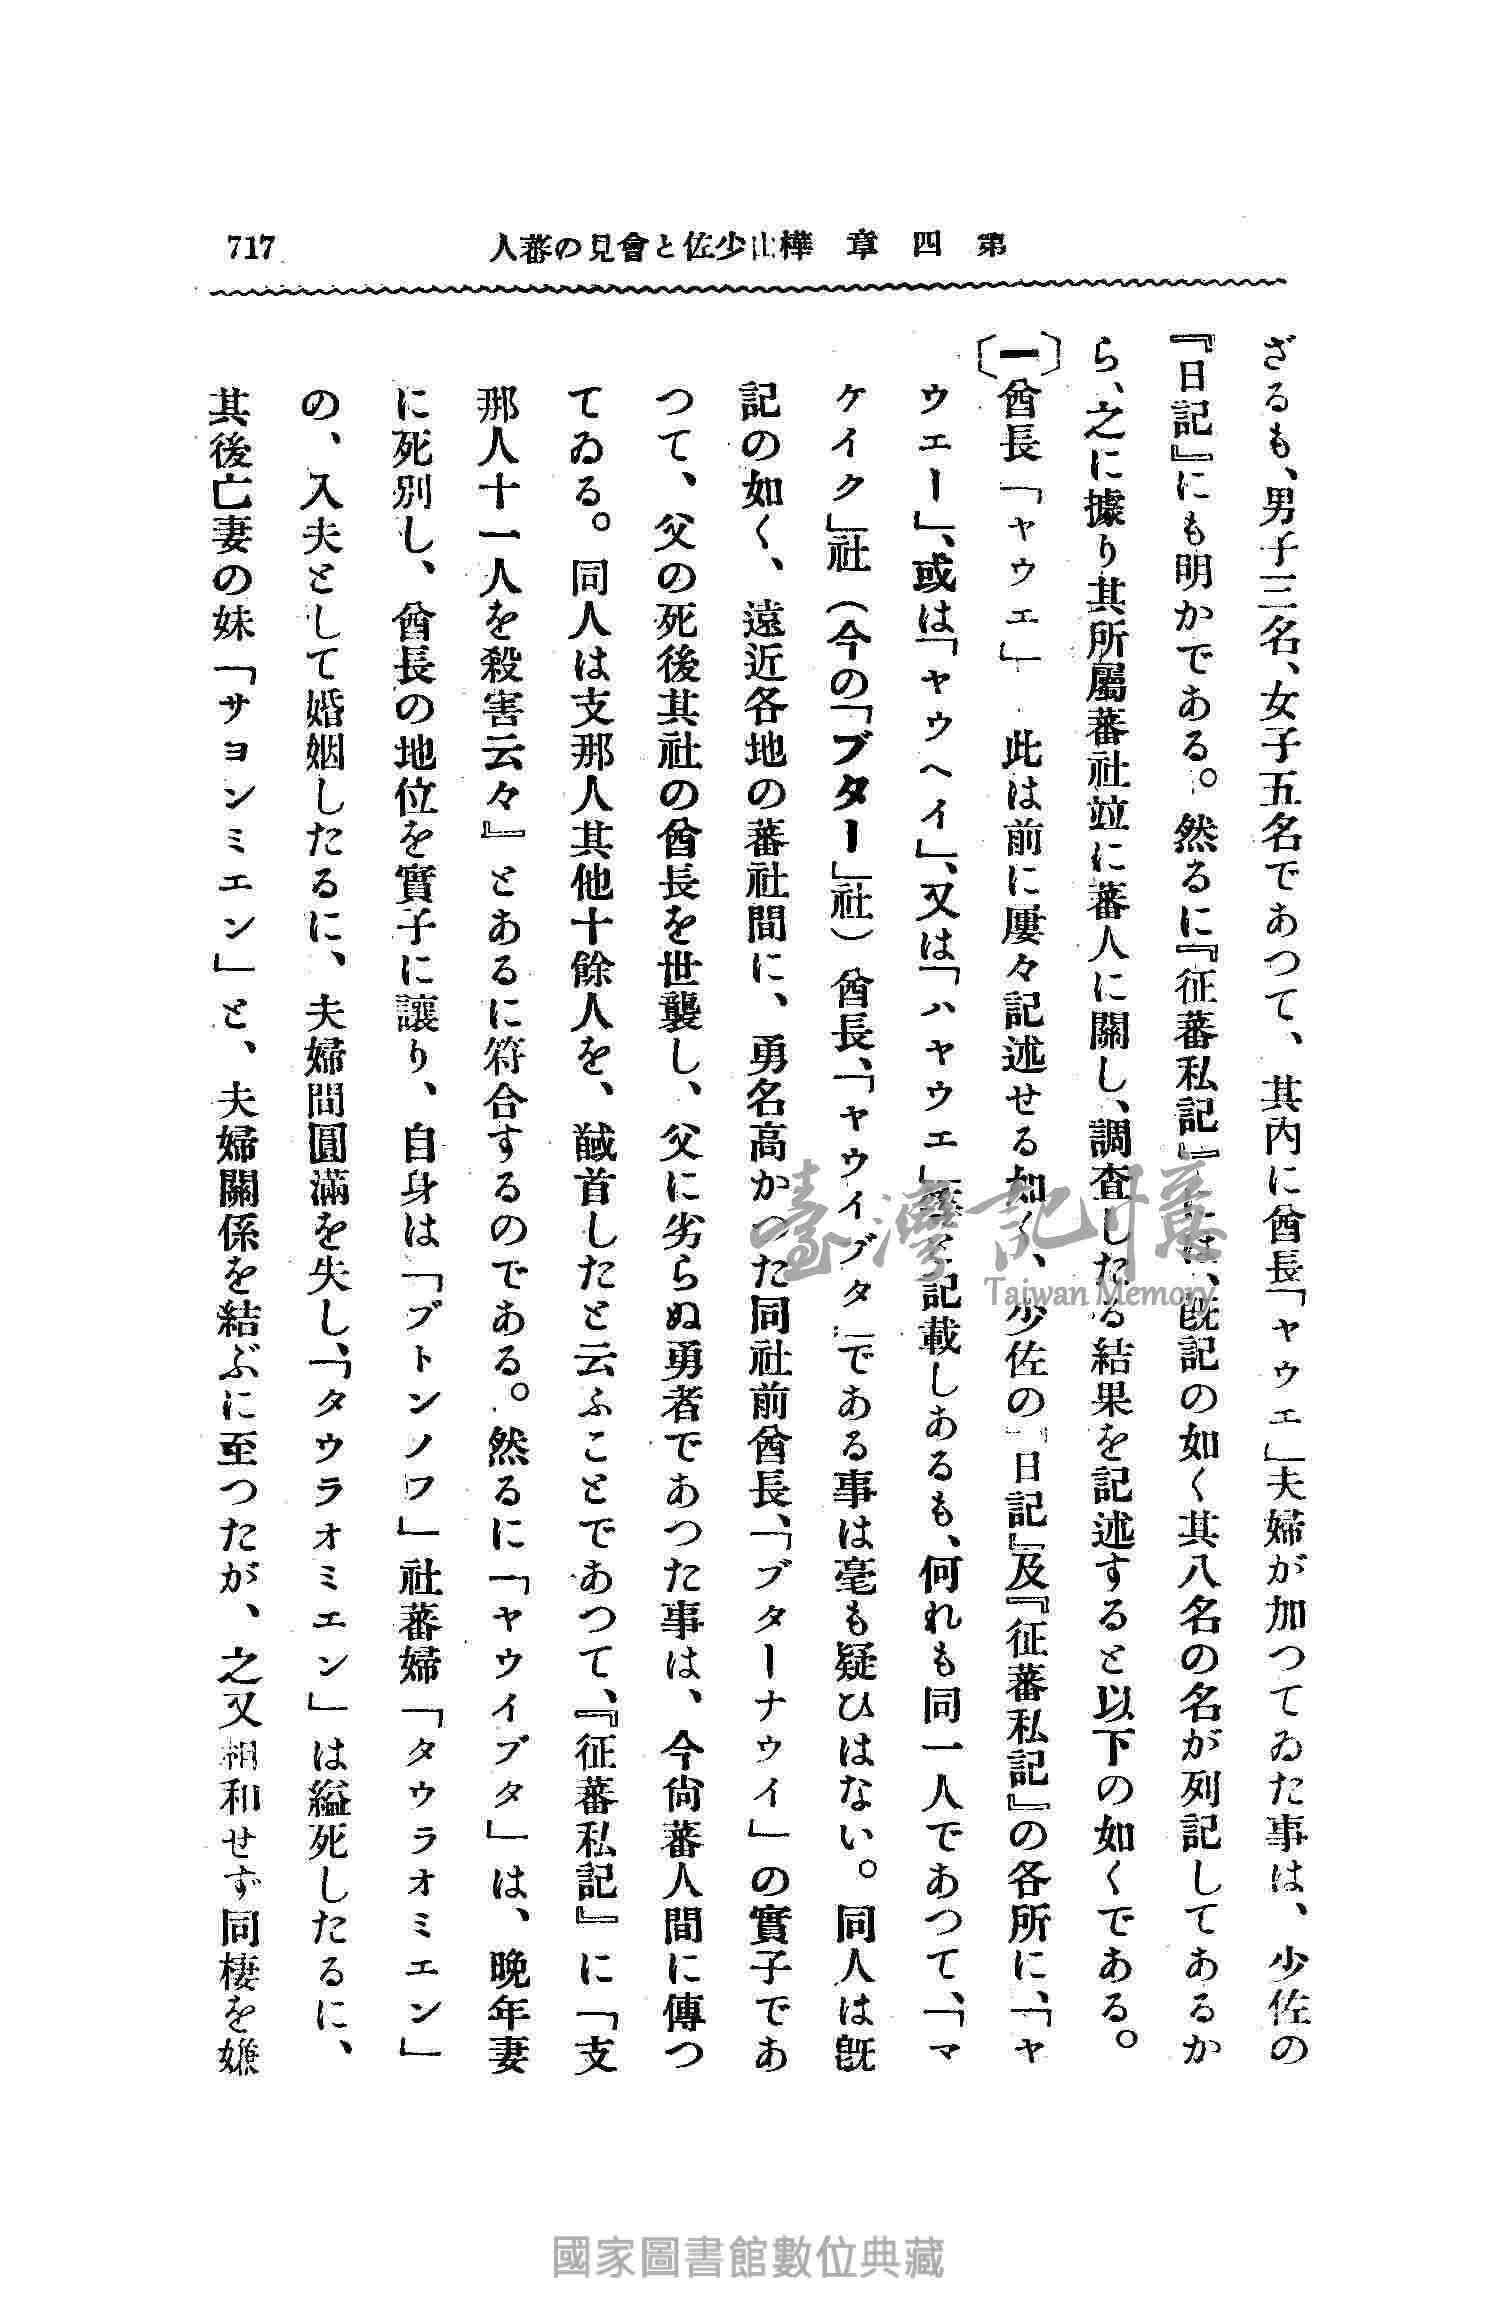 第四章 樺山少佐と會見の蕃人
717
ざるも、男子三名、女子五名であつて、其内に酋長「ヤウエ」夫婦が加つてゐた事は、少佐の
『日記』にも明かである。然るに『征蕃私記』には、既記の如く其八名の名が列記してあるか
ら、之に據り其所屬蕃社竝に蕃人に關し、調査したる結果を記述すると以下の如くである。
〔一〕酋長「ヤウエ」 此は前に屢々記述せる如く、少佐の『日記』及『征蕃私記』の各所に、「ヤ
ウエー」、或は「ヤウヘイ」、又は「ハヤウエ」等と記載しあるも、何れも同一人であつて、「マ
ケイク」社（今の「ブター」社）酋長、「ヤウイブタ」である事は毫も疑ひはない。同人は既
記の如く、遠近各地の蕃社間に、勇名高かつた同社前酋長、「ブターナウイ」の實子であ
つて、父の死後其社の酋長を世襲し、父に劣らぬ勇者であつた事は、今尙蕃人間に傳つ
てゐる。同人は支那人其他十餘人を、馘首したと云ふことであつて、『征蕃私記』に「支
那人十一人を殺害云々』とあるに符合するのである。然るに「ヤウイブタ」は、晚年妻
に死別し、酋長の地位を實子に讓り、自身は「ブトンノワ」社蕃婦「タウラオミエン」
の、入夫として婚姻したるに、夫婦間圓滿を失し、「タウラオミエン」は縊死したるに、
其後亡妻の妹「サヨンミエン」と、夫婦關係を結ぶに至つたが、之又相和せず同棲を嫌
臺灣記憶
Taiwan Memory
國家圖書館數位典藏